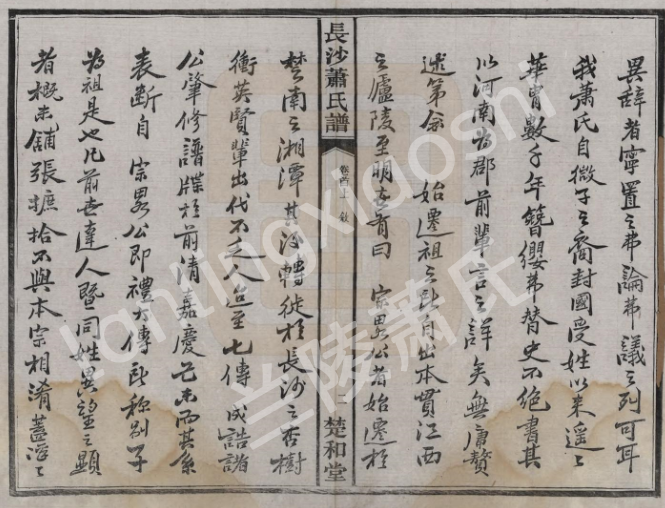 異辞者寧置之弗論弗議之列可耳
我蕭氏自微子之裔封國受姓以来遥遥
華胄數千年簪纓弗替史不絶書其
以河南為郡前輩言之詳矣無庸贅
述第余 始遷祖之所自出本貫江西
之廬陵至明有曰 宗畧公者始遷於
長沙蕭氏譜
卷首上 敘
二
楚和堂
楚南之湘潭其後轉徙於長沙之杏樹
衝英賢輩出代不乏人迨至七傳成誥諧
公肇修譜牒於前清嘉慶己未而其系
表斷自 宗畧公即禮大傳所稱别子
為祖是也凡前世達人暨同姓異望之顯
者概未鋪張摭拾不與本宗相淆蓋滔滔
lantingxiaoshi
兰陵萧氏